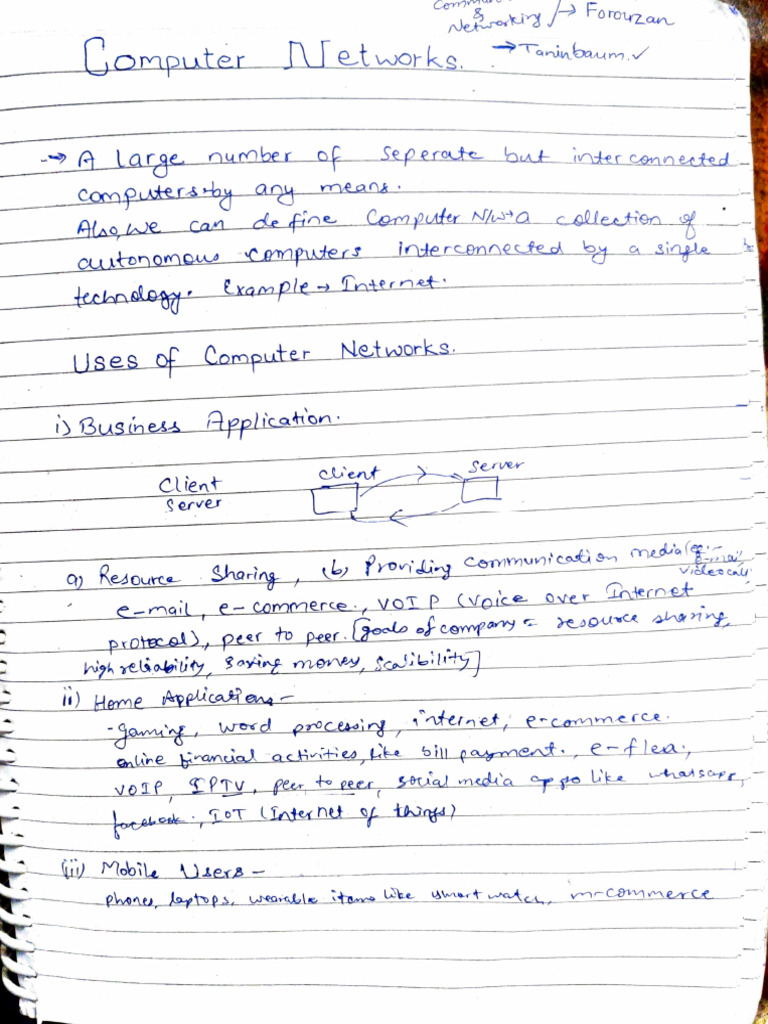 & Networking / → Forouzan
→ Taninbaum ✓
Computer Networks.
→ A large number of seperate but interconnected
computers by any means.
Also, we can define Computer N/w → a collection of
autonomous computers interconnected by a single
technology. Example → Internet.
Uses of Computer Networks.
i) Business Application.
Client Server
client
server
a) Resource Sharing, (b) Providing communication media (eg:- e-mail, videocall
e-mail, e-commerce., VOIP (Voice over Internet
protocol), peer to peer. [goals of company = resource sharing,
high reliability, saving money, scalibility]
ii) Home Applications -
- gaming, word processing, internet, e-commerce.
online financial activities, like bill payment., e-flea.,
VOIP, IPTV, peer to peer, social media apps like whatsapp,
facebook., IOT (Internet of things)
(iii) Mobile Users -
phones, laptops, wearable items like smart watch, m-commerce